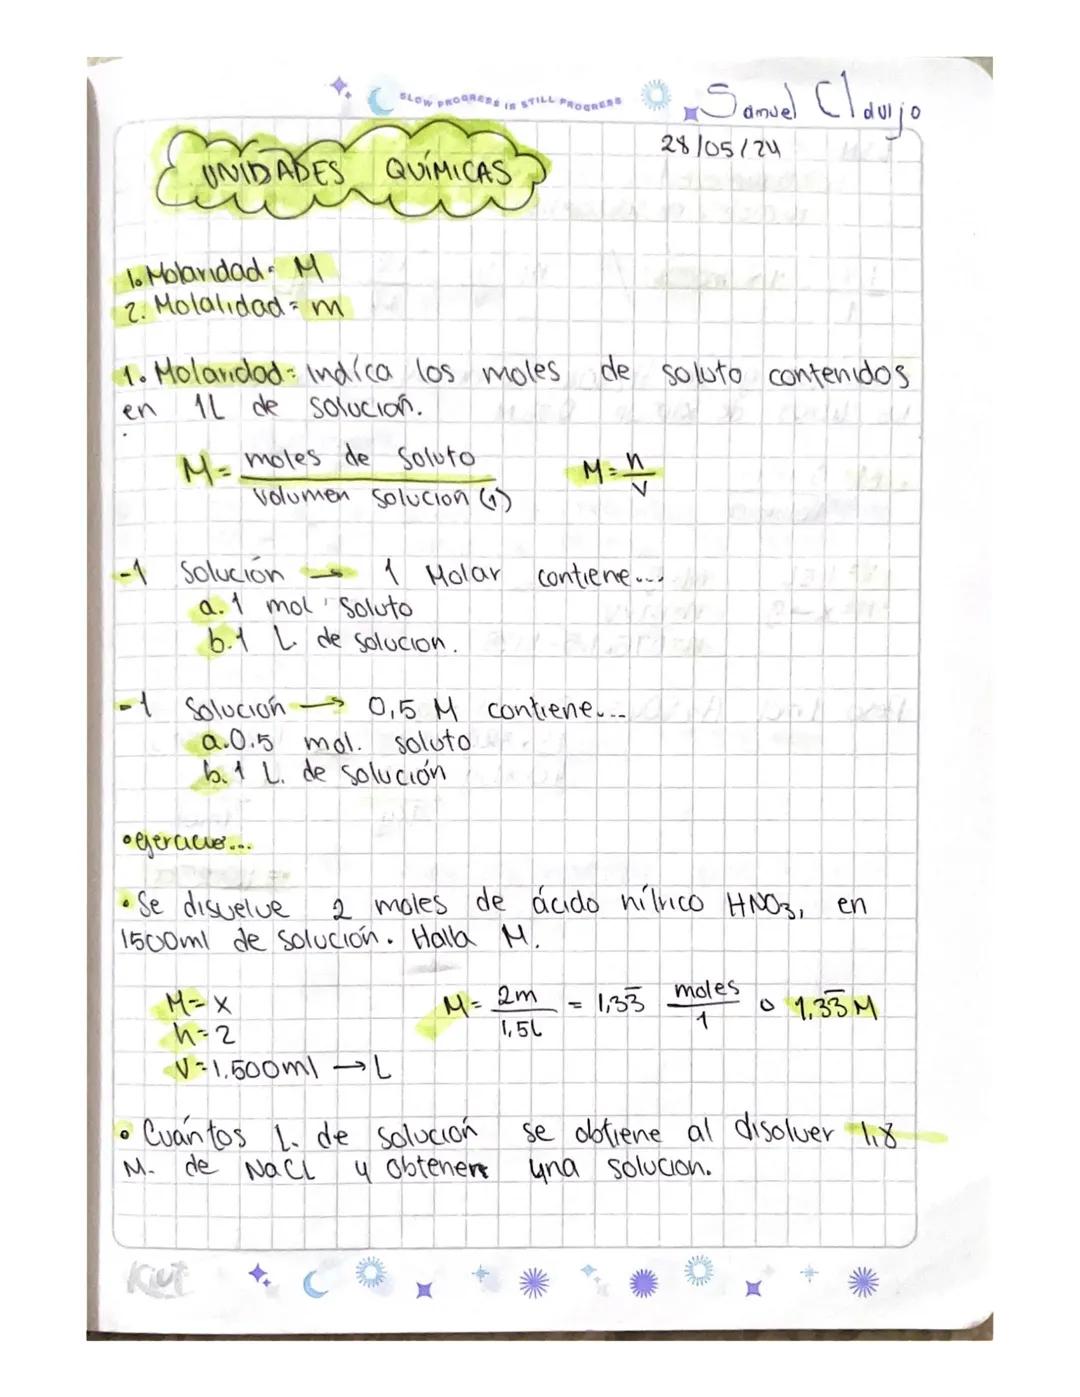 SLOW PROGRESS IS STILL PROGRESS
Samuel Clavijo
28/05/24
UNIDADES QUÍMICAS
1. Molaridad= M
2. Molalidad= m
1. Molaridad= Indíca los moles de soluto contenidos
en 1L de solución.
M= moles de soluto
volumen solucion (1)
M= n
V
-1 Solución → 1 Molar contiene...
a. 1 mol soluto
b. 1 L. de solucion.
-1 Solución → 0,5 M contiene...
a. 0.5 mol. soluto
b. 1 L. de solución
•ejercicio...
• Se disuelve 2 moles de ácido nítrico HNO3, en
1500ml de solución. Halla M.
M= x
n=2
V=1.500ml → L
M= 2m = 1,33 moles o 1,33 M
1,5L 1
• Cuántos L. de solución se obtiene al disolver 1,8
M. de NaCl y obtener una solucion.
Kiut